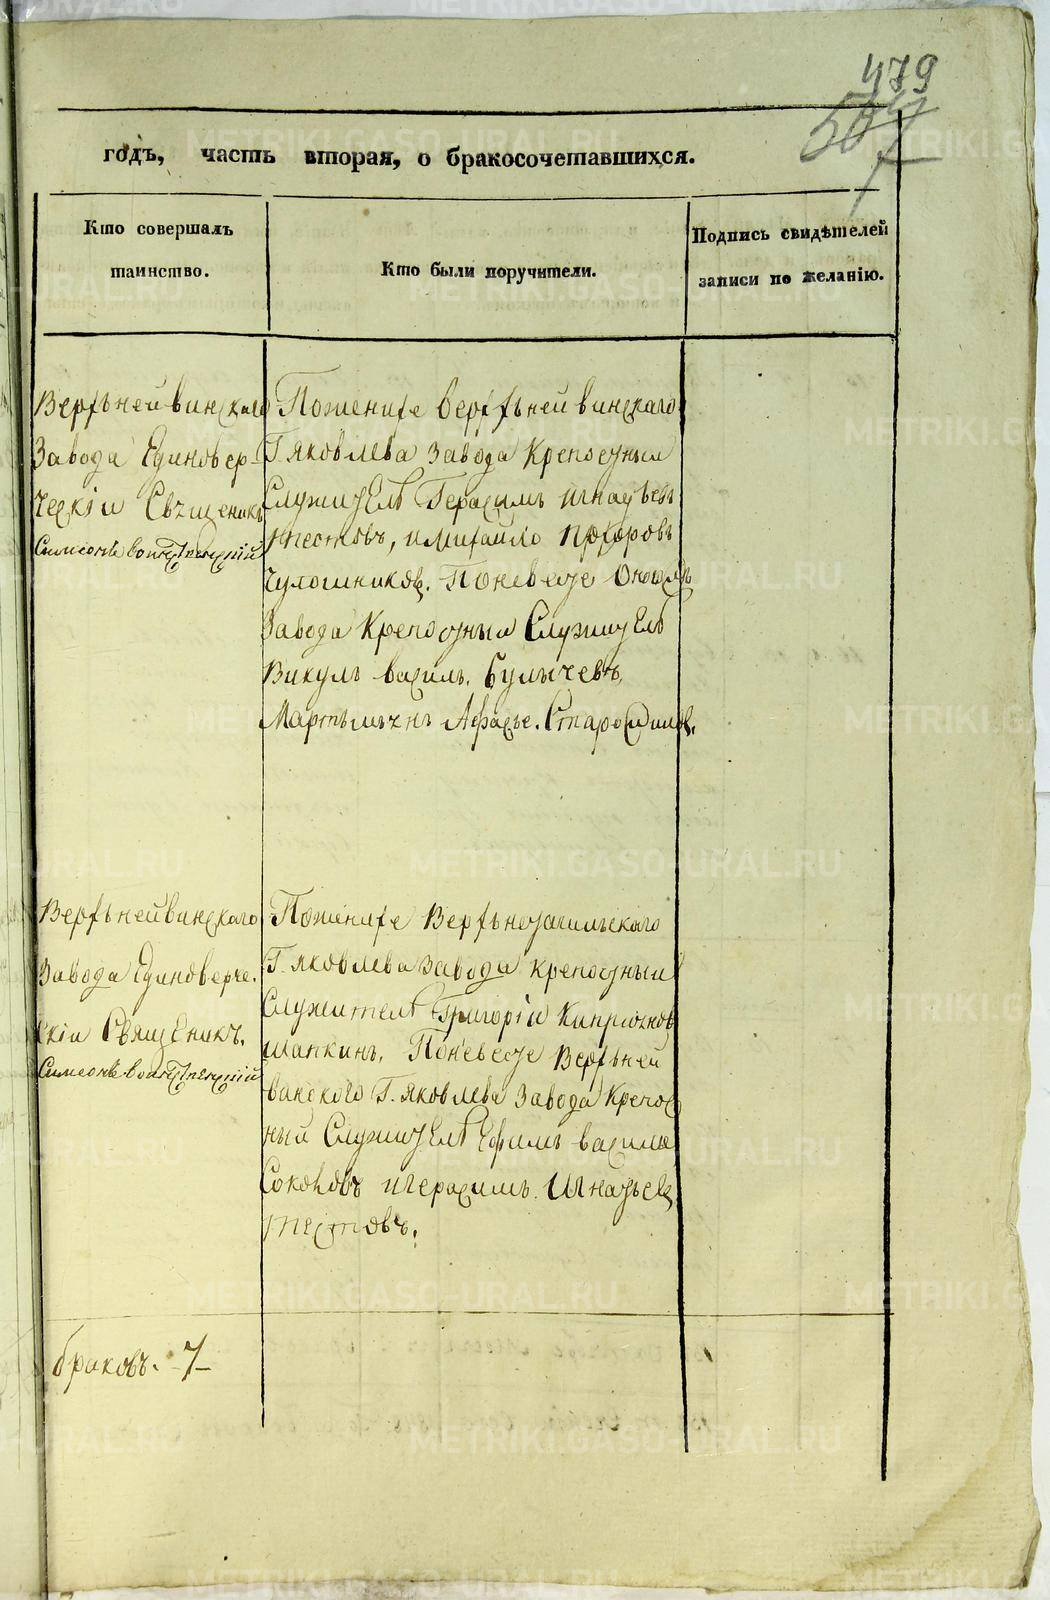 479
507
годъ, часть вторая, о бракосочетавшихся.
Кто совершалъ
таинство.
Кто были поручители.
Подпись свидѣтелей
записи по желанію.
Верхънейвинскаго
Завода Единовер-
ческій Священикъ
Симеонъ
Поженихе верхъней винскаго
Г. яковлева завода Крепостныи
Служитель Герасимъ игнатьевъ
тестовъ, имихайло прохоровъ
Чулошников. Поневесте Оного
Завода Крепостныи Служитель
Викулъ василь. Булычевъ,
Мартемьянъ Афасье. Старо
Верхънейвинскаго
Завода Единоверче.
скіи Священикъ.
Симеонъ
Поженихе Верхънетагильскаго
Г. яковлева Завода крепостныи
Служитель Григоріи Киприянов
шапкинъ. Поневесте Верхъней
винского Г. яковлева Завода Крепос
ныи Служитель Ефимъ василье
Соколовъ игерасимъ. Игнатьев
тестовъ.
браковъ. 7
METRIKI.GASO-URAL.RU